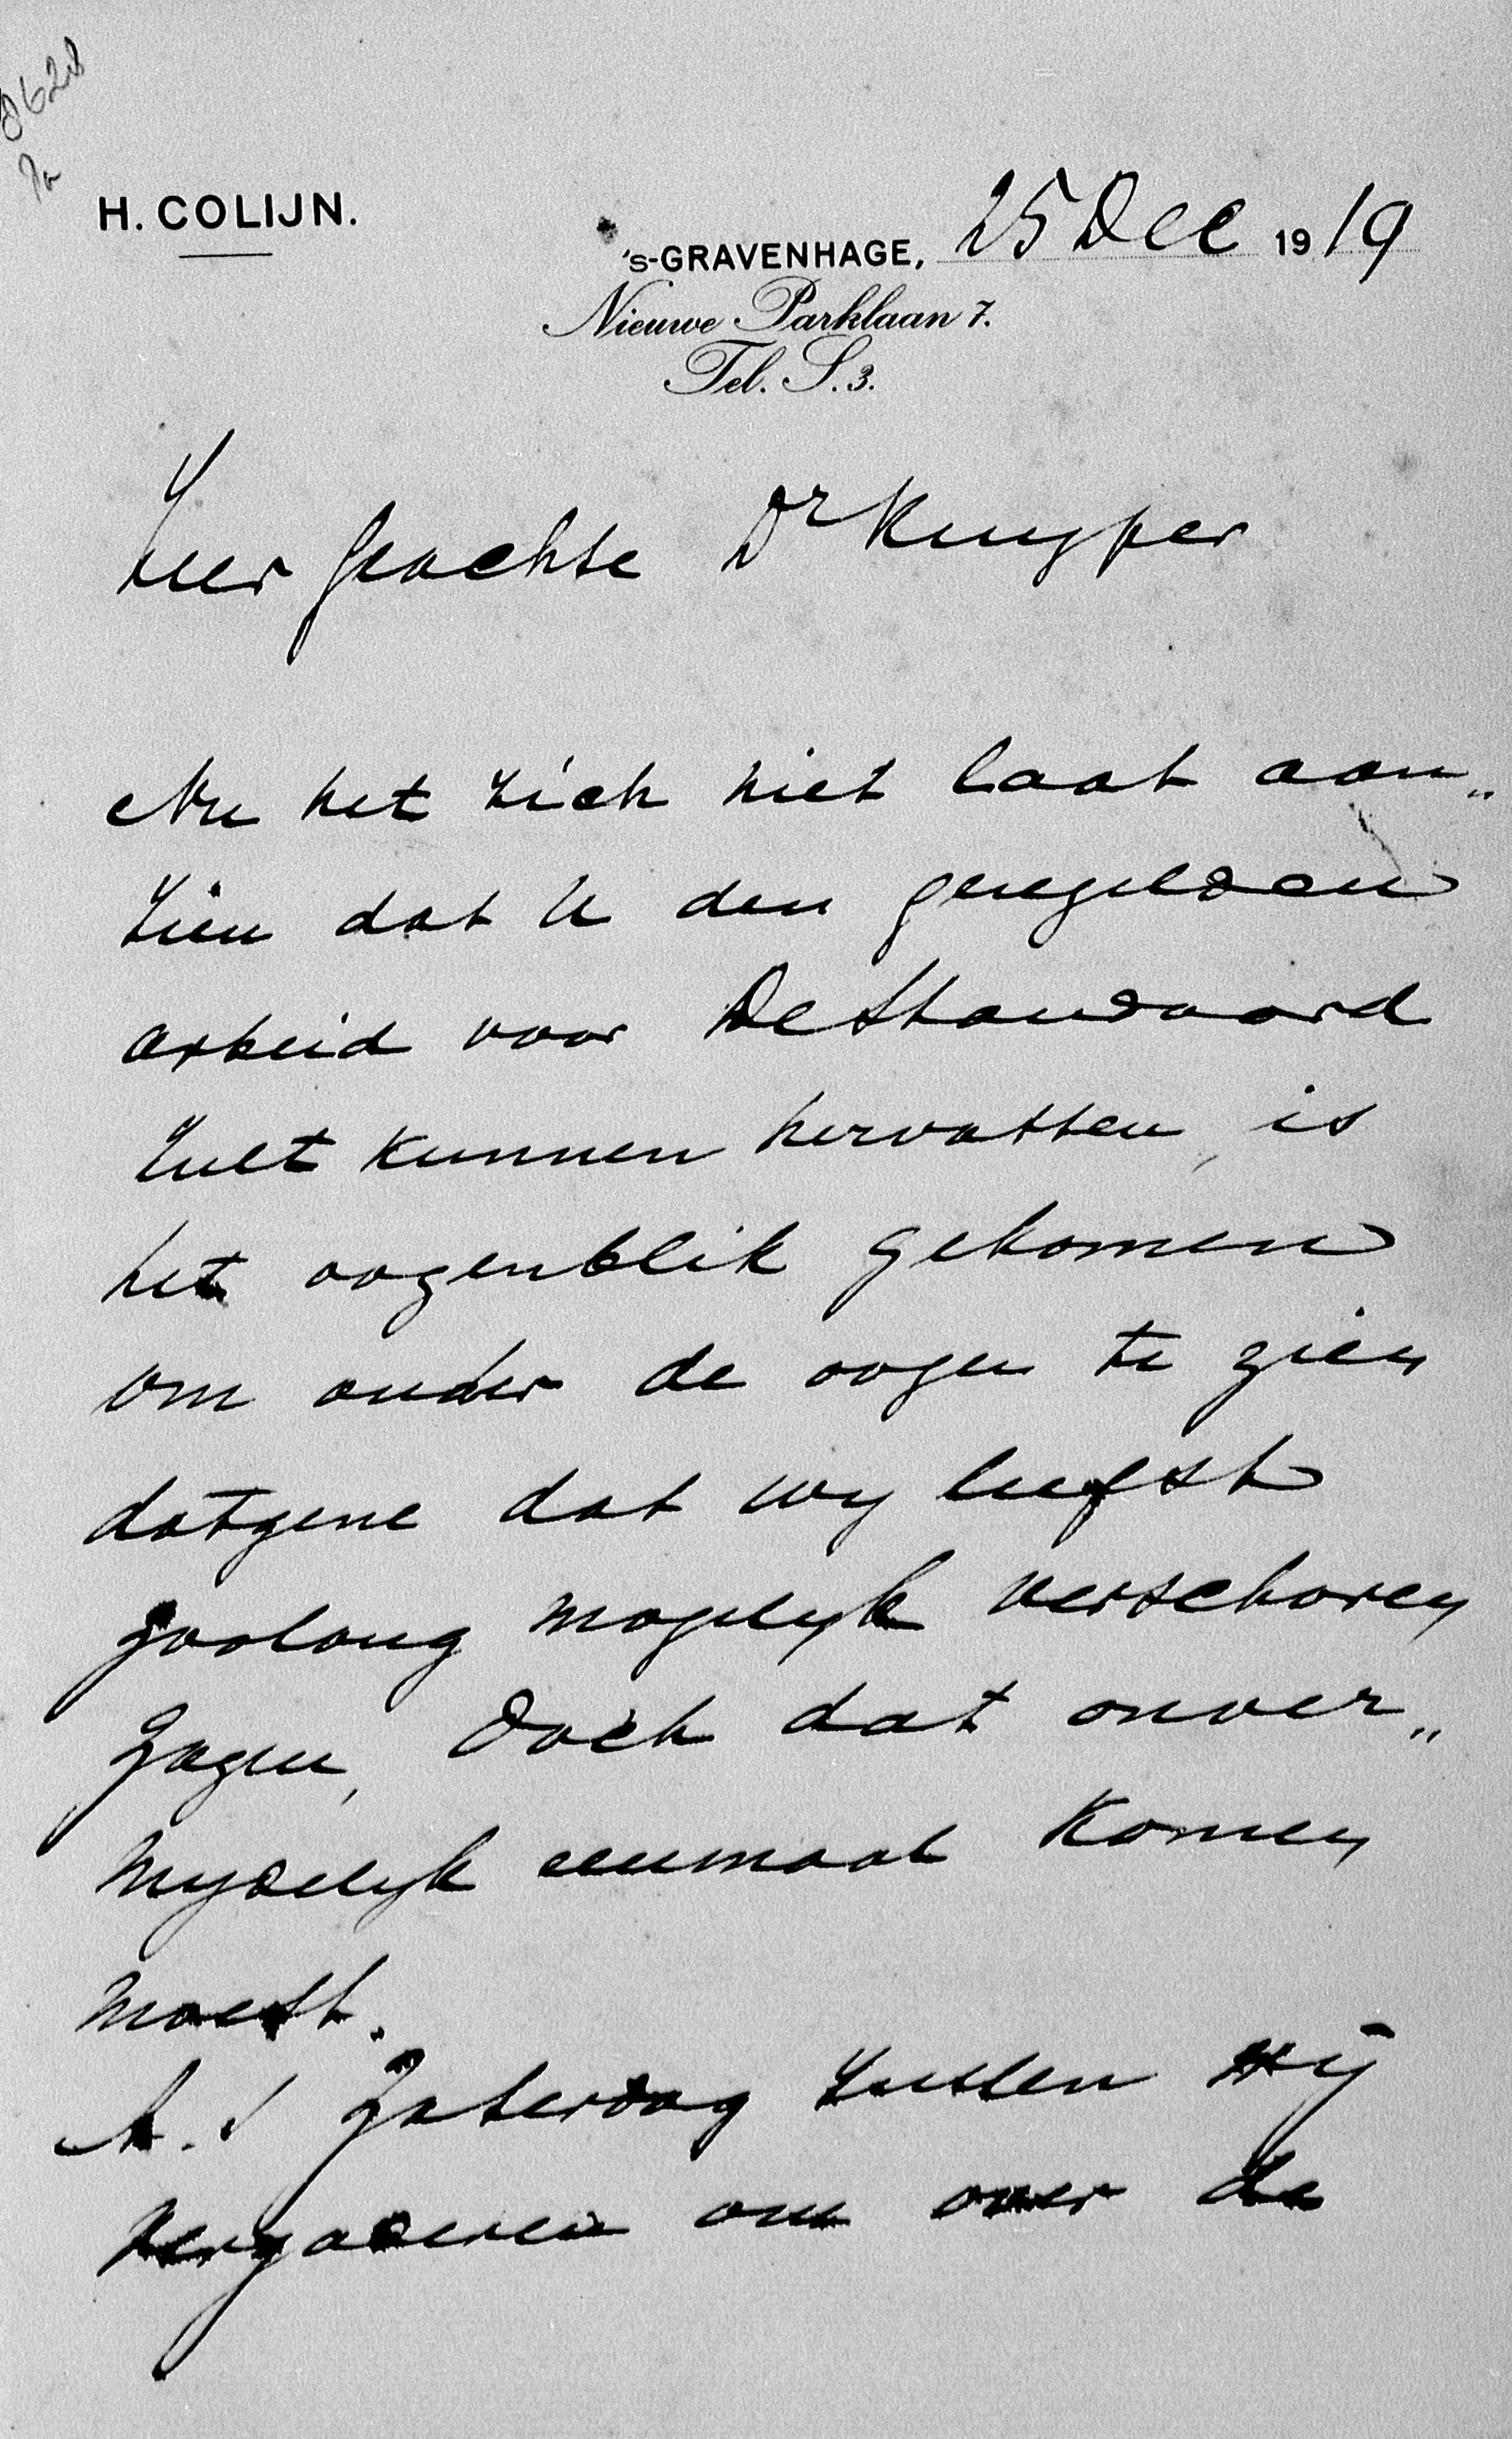 8628
H. COLIJN.
's-GRAVENHAGE, 25 Dec 1919
Nieuwe Parklaan 7.
Tel. S. 3.
Zeer Geachte Dr Kuyper
Nu het zich niet laat aan„
zien dat U den geregelden
arbeid voor De Standaard
zult kunnen hervatten, is
het oogenblik gekomen
om onder de oogen te zien
datgene dat wy liefst
zoolang mogelyk verschoven
zagen, doch dat onver„
mydelyk eenmaal komen
moest.
A. s Zaterdag zullen wij
vergaderen om over de